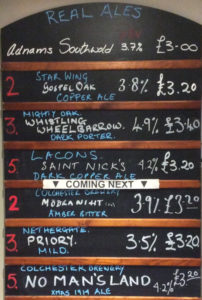 REAL ALES
Adnams Southwold 3.7% £3-00
2 STAR WING
GOSPEL OAK 3.8% £3.20
COPPER ALE
MIGHTY OAK
3. WHISTLING
WHEELBARROW. 4.9% £3.40
DARK PORTER.
LACONS.
5 SAINT NICK'S 4.2% £3.20
DARK COPPER ALE
▼ COMING NEXT ▼
COLCHESTER BREWERY
2 3.9% £3.20
AMBER BITTER
NETHERGATE.
3 PRIORY. 3.5% £3.20
MILD.
COLCHESTER BREWERY
5 NO MAN'S LAND 4.2% £3.20
XMAS 1914 ALE